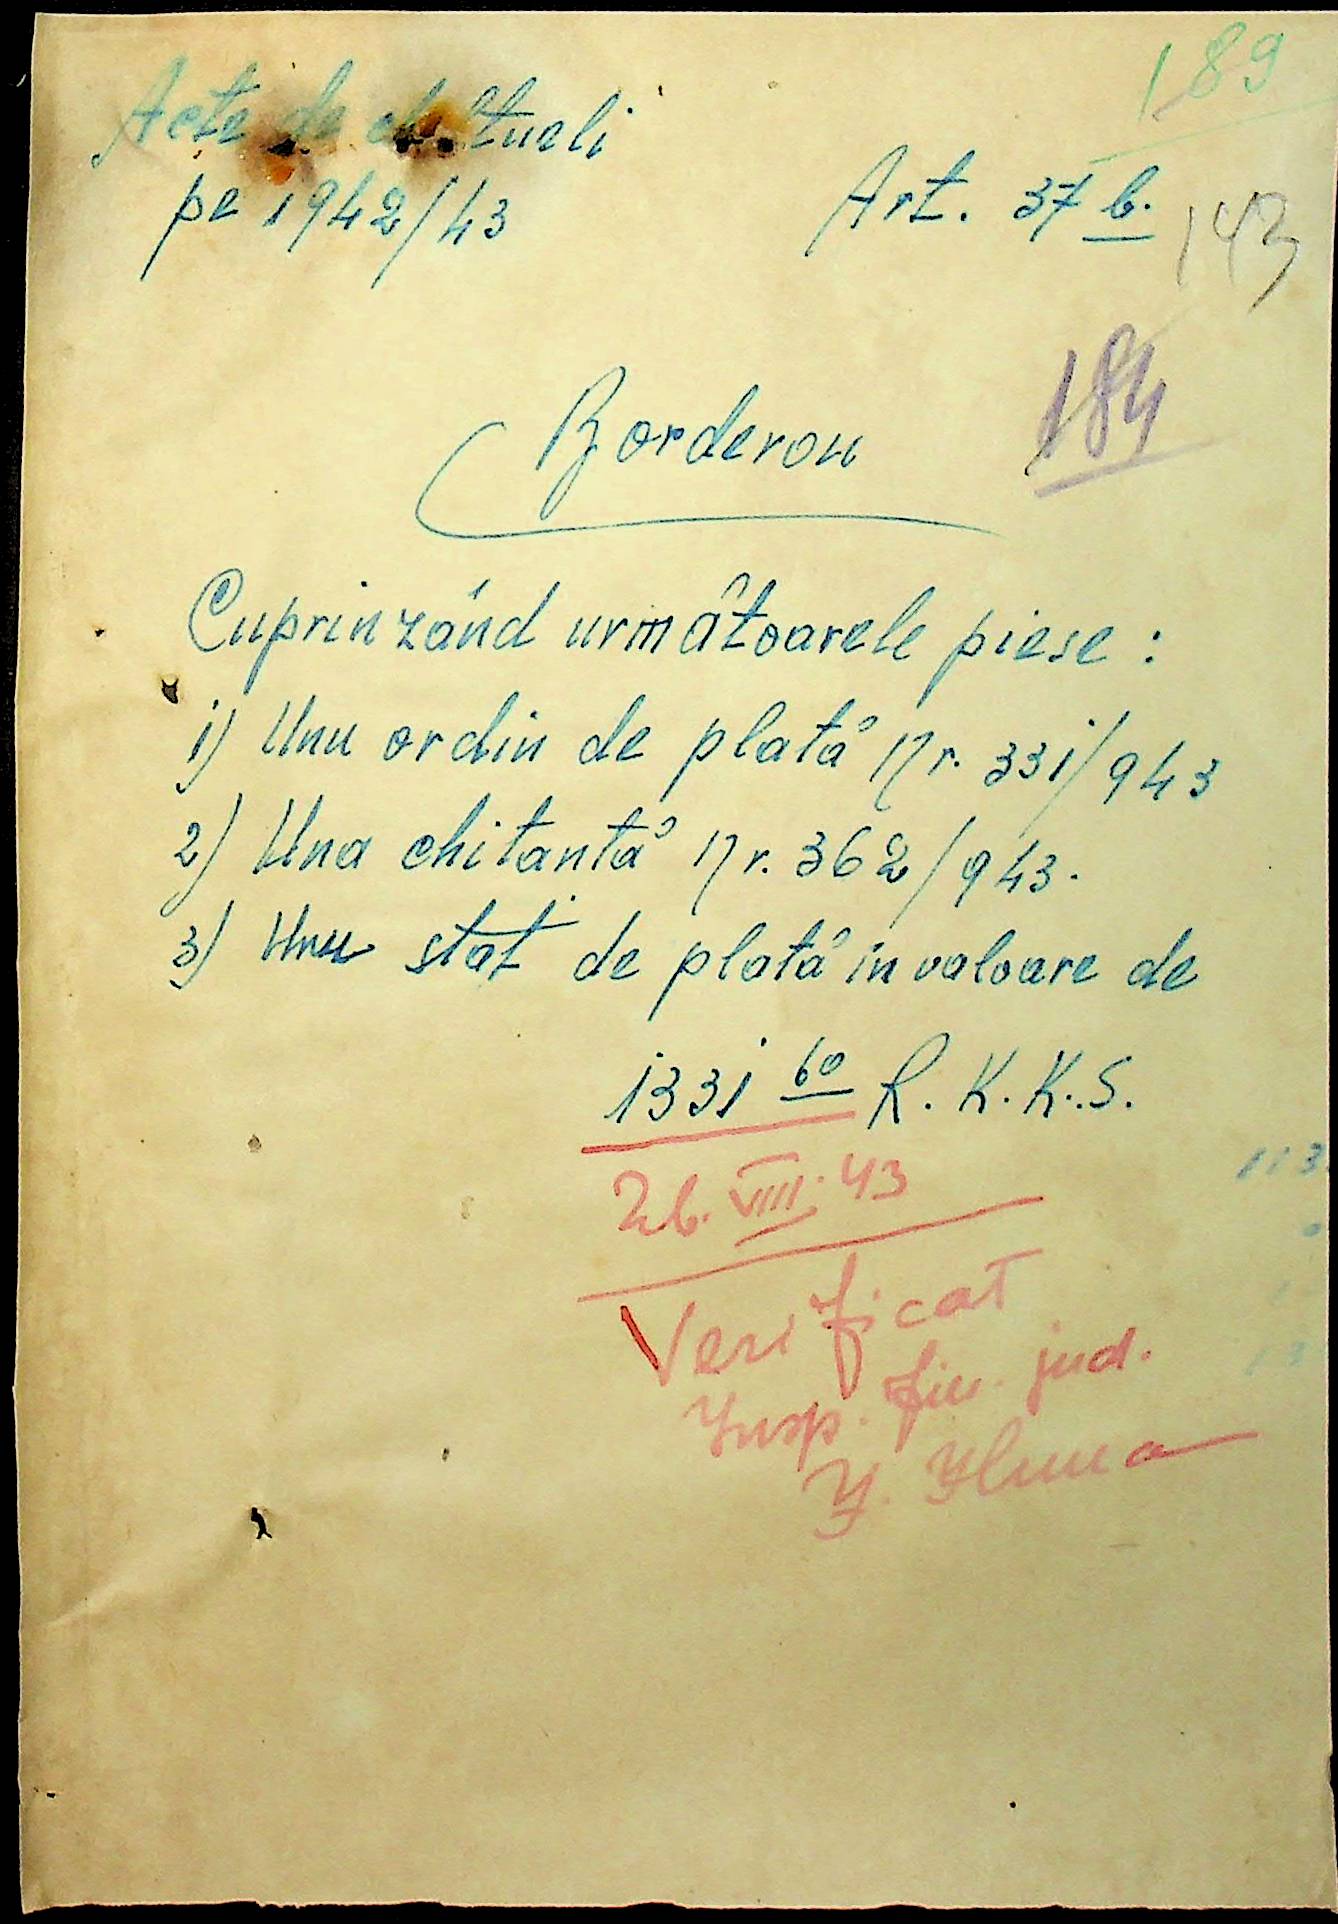 189
Acte de cheltueli
pe 1942/43
Art. 37 b.
143
184
Borderou
Cuprinzând urmâtoarele piese :
1) Unu ordin de platá Nr. 331/943
2) Una chitantá Nr. 362/943.
3) Unu stat de platá in valoare de
1331 60 R. K. K. S.
26. VIII. 43
Verificat
Insp. fin. jud.